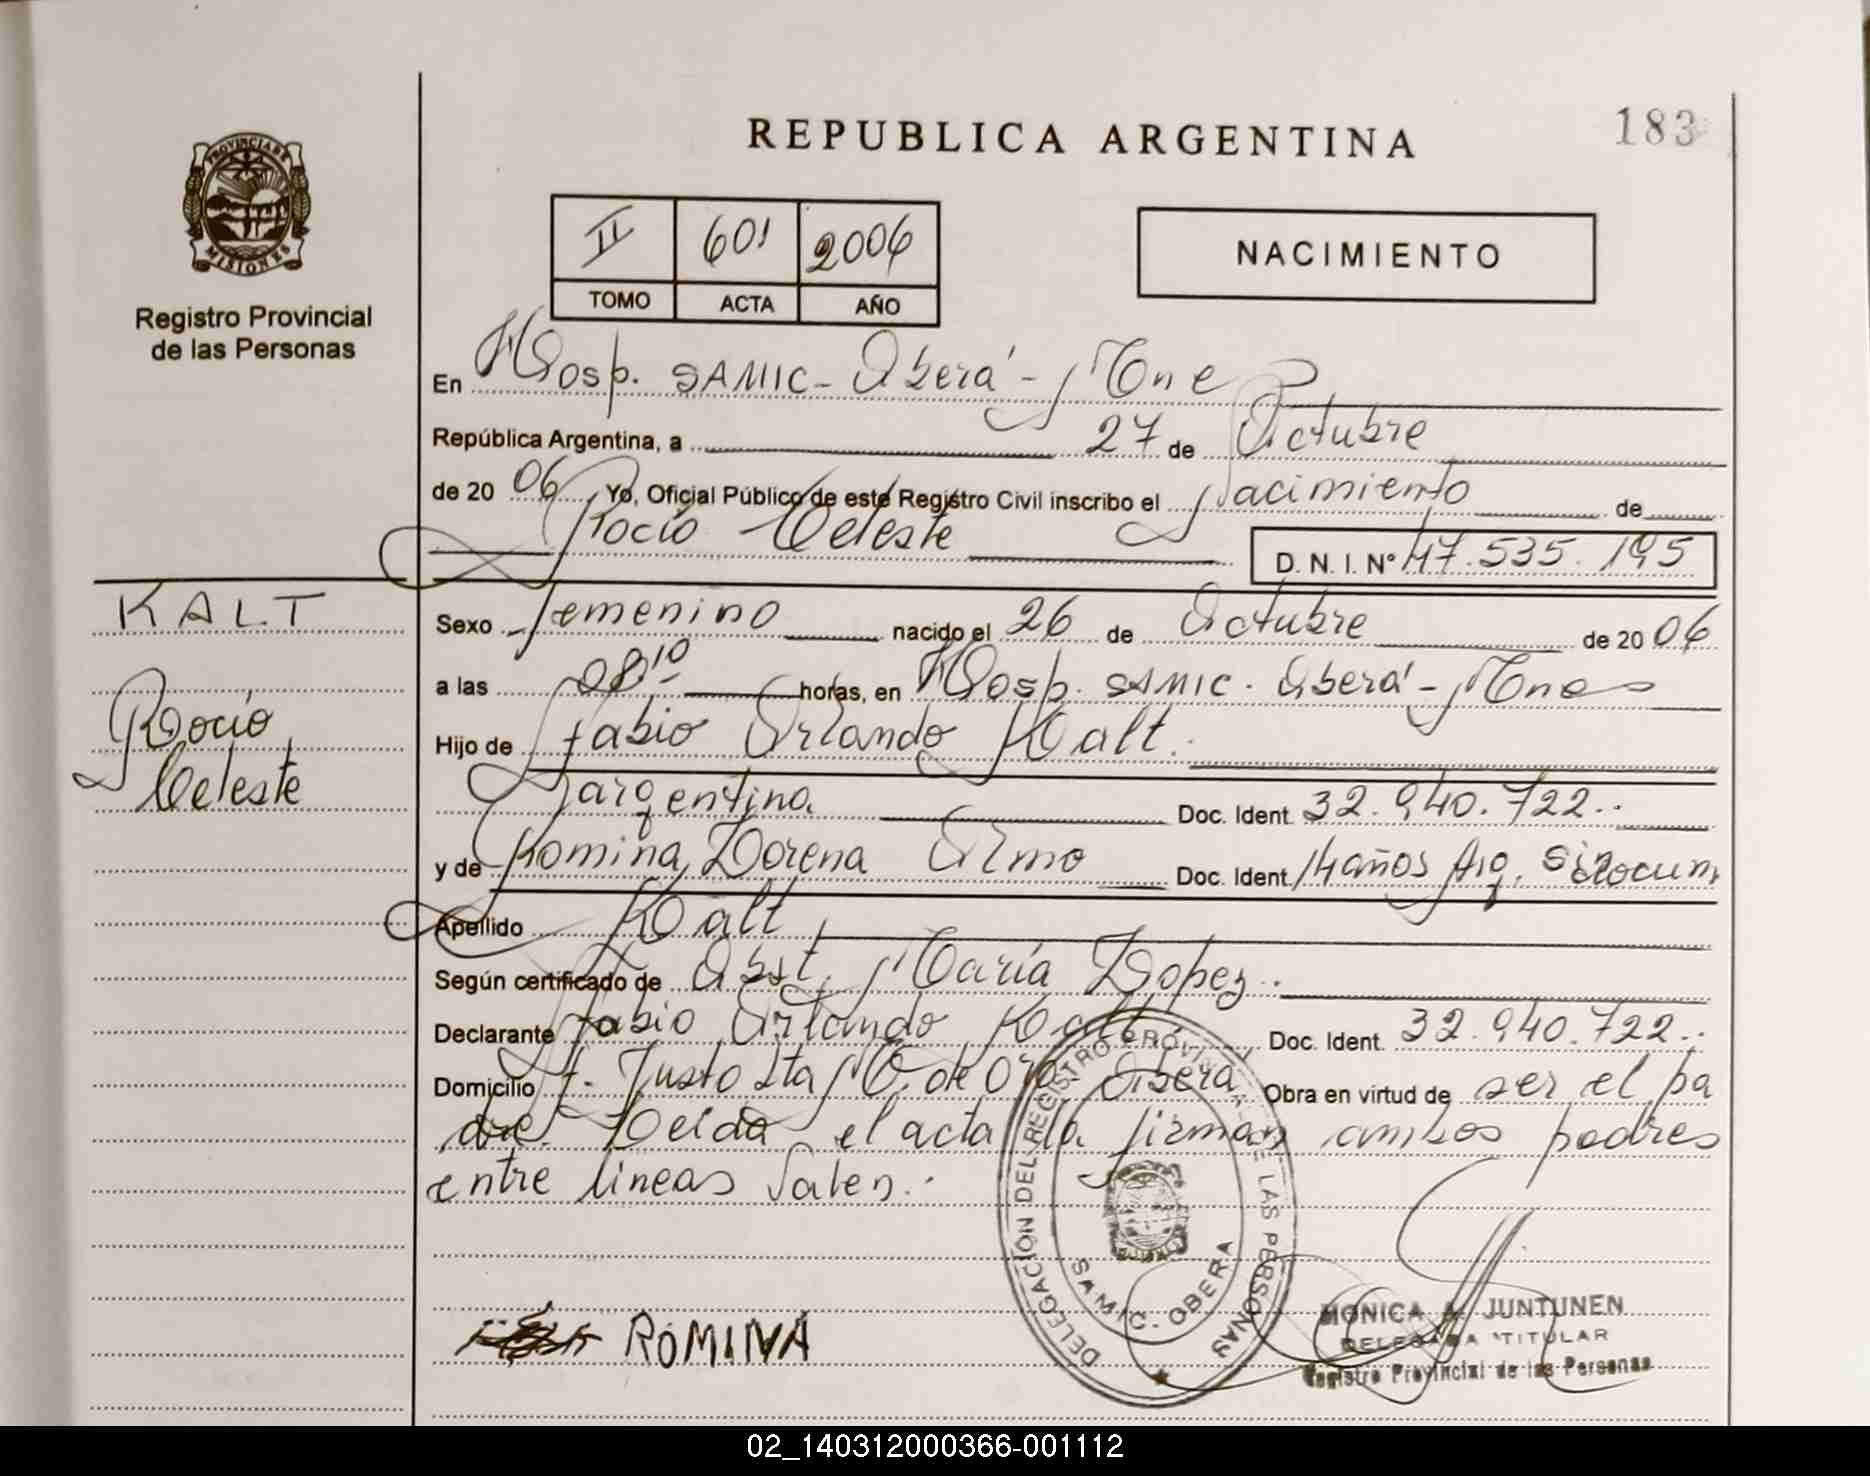 REPUBLICA ARGENTINA
183
PROVINCIA DE
MISIONES
Registro Provincial
de las Personas
II 601 2006
TOMO ACTA AÑO
NACIMIENTO
En Hosp. SAMIC - Oberá - Mnes
República Argentina, a 27 de Octubre
de 2006 Yo, Oficial Público de este Registro Civil inscribo el Nacimiento de
Rocío Celeste D. N. I. N° 47.535.195
KALT
Rocío
Celeste
Sexo Femenino nacido el 26 de Octubre de 2006
a las 08 10 horas, en Hosp. SAMIC. Oberá - Mnes
Hijo de Fabio Orlando Kalt.
argentino Doc. Ident. 32.940.722.
y de Romina Lorena Olmo Doc. Ident. 14 años Arg. Sin Docum.
Apellido Kalt
Según certificado de Obst. María Lopez.
Declarante Fabio Orlando Kalt Doc. Ident. 32.940.722.
Domicilio F. Justo Sta M. de Oro - Oberá Obra en virtud de ser el pa
dre. Leída el acta la firman ambos padres
entre lineas Valen.
DELEGACION DEL REGISTRO PROVINCIAL DE LAS PERSONAS
SAMIC. OBERA
ROMINA
MONICA A. JUNTUNEN
DELEGADA TITULAR
Registro Provincial de las Personas
02_140312000366-001112